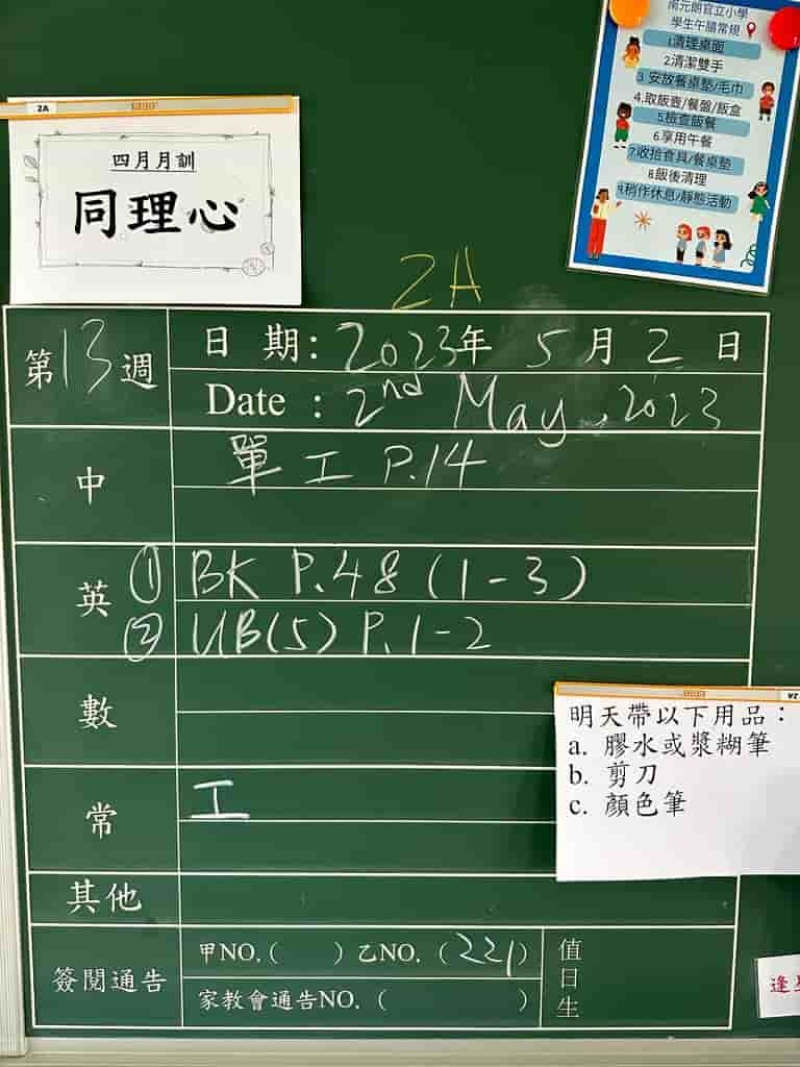 南元朗官立小學
學生午膳常規
1.清理桌面
2.清潔雙手
3.安放餐桌墊/毛巾
4.取飯壺/餐盤/飯盒
5.檢查飯餐
6.享用午餐
7.收拾食具/餐桌墊
8.飯後清理
9.稍作休息/靜態活動
2A
四月月訓
同理心
2A
第13週
日 期: 2023年 5月 2 日
Date : 2nd May, 2023
中
單工 P.14
英
① BK P.48 (1-3)
② UB(5) P.1-2
數
明天帶以下用品:
a. 膠水或漿糊筆
b. 剪刀
c. 顏色筆
常
工
其他
簽閱通告
甲NO.( ) 乙NO. (221)
家教會通告NO. ( )
值日生
逢